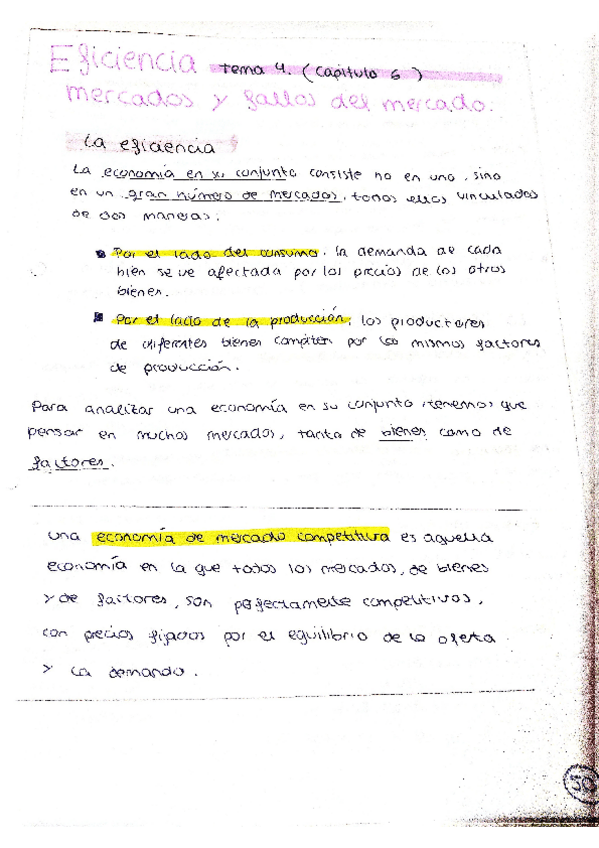 Eficiencia tema 4. (capitulo 6)
mercados y fallos del mercado.
La eficiencia
La economía en su conjunto consiste no en uno, sino
en un gran número de mercados, todos ellos vinculados
de dos maneras:
Por el lado del consumo, la demanda de cada
bien se ve afectada por los precios de los otros
bienes.
Por el lado de la producción, los productores
de diferentes bienes compiten por los mismos factores
de producción.
Para analizar una economía en su conjunto, tenemos que
pensar en muchos mercados, tanto de bienes como de
factores.
Una economía de mercado competitiva es aquella
economía en la que todos los mercados, de bienes
y de factores, son perfectamente competitivos,
con precios fijados por el equilibrio de la oferta
y la demanda.